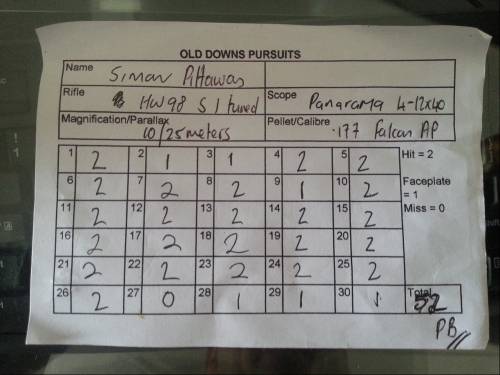 OLD DOWNS PURSUITS
Name Simon Pittaway
Rifle HW98 S/tuned Scope Panarama 4-12x40
Magnification/Parallax 10/25meters Pellet/Calibre .177 Falcon AP
1 2 2 1 3 1 4 2 5 2 Hit = 2
6 2 7 2 8 2 9 1 10 2 Faceplate = 1
11 2 12 2 13 2 14 2 15 2 Miss = 0
16 2 17 2 18 2 19 2 20 2
21 2 22 2 23 2 24 2 25 2
26 2 27 0 28 1 29 1 30 1 Total 52
PB